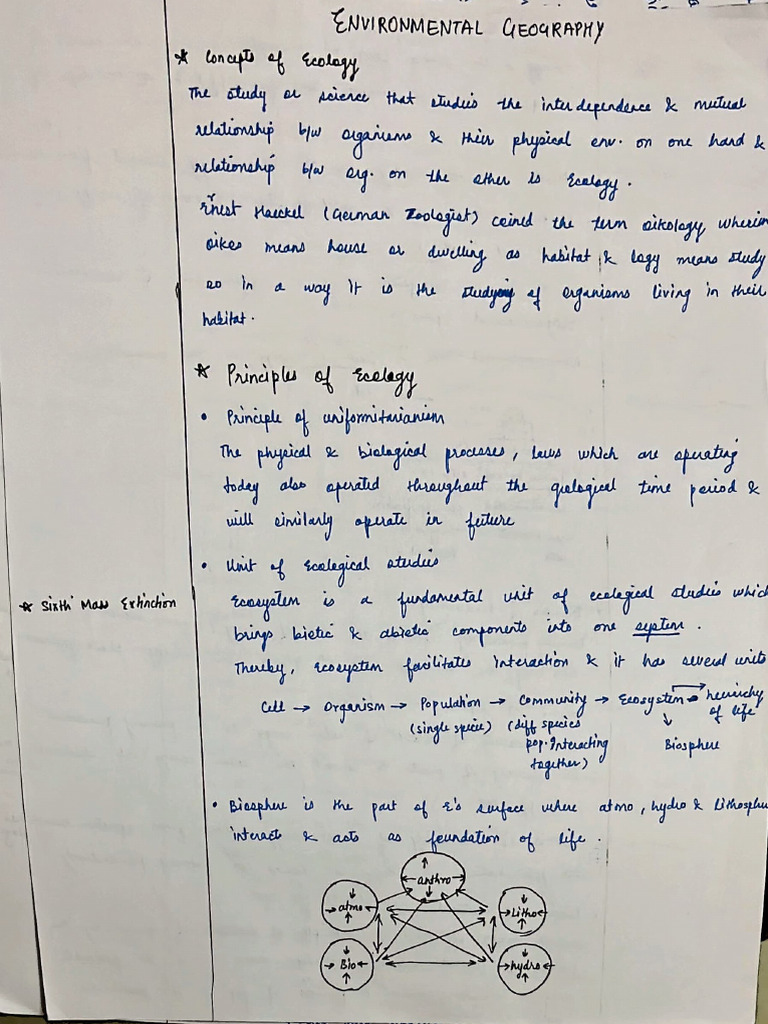 ENVIRONMENTAL GEOGRAPHY
* Concepts of Ecology
The study or science that studies the interdependence & mutual
relationship b/w organisms & their physical env. on one hand &
relationship b/w org. on the other is Ecology.
Ernest Haeckel (German Zoologist) coined the term oikology, wherein
oikes means house or dwelling as habitat & logy means study
so in a way it is the studying of organisms living in their
habitat.
* Principles of Ecology
• Principle of uniformitarianism
The physical & biological processes, laws which are operating
today also operated throughout the geological time period &
will similarly operate in future
• Unit of Ecological studies
* Sixth Mass Extinction
Ecosystem is a fundamental unit of ecological studies which
brings biotic & abiotic components into one system.
Thereby, ecosystem facilitates interaction & it has several units
Cell → Organism → Population → Community → Ecosystem → heirarchy
(single specie) (diff species of life
pop. interacting Biosphere
together)
• Biosphere is the part of E's surface where atmo, hydro & Lithosphere
interact & acts as foundation of life.
anthro
atmo Litho
Bio hydro